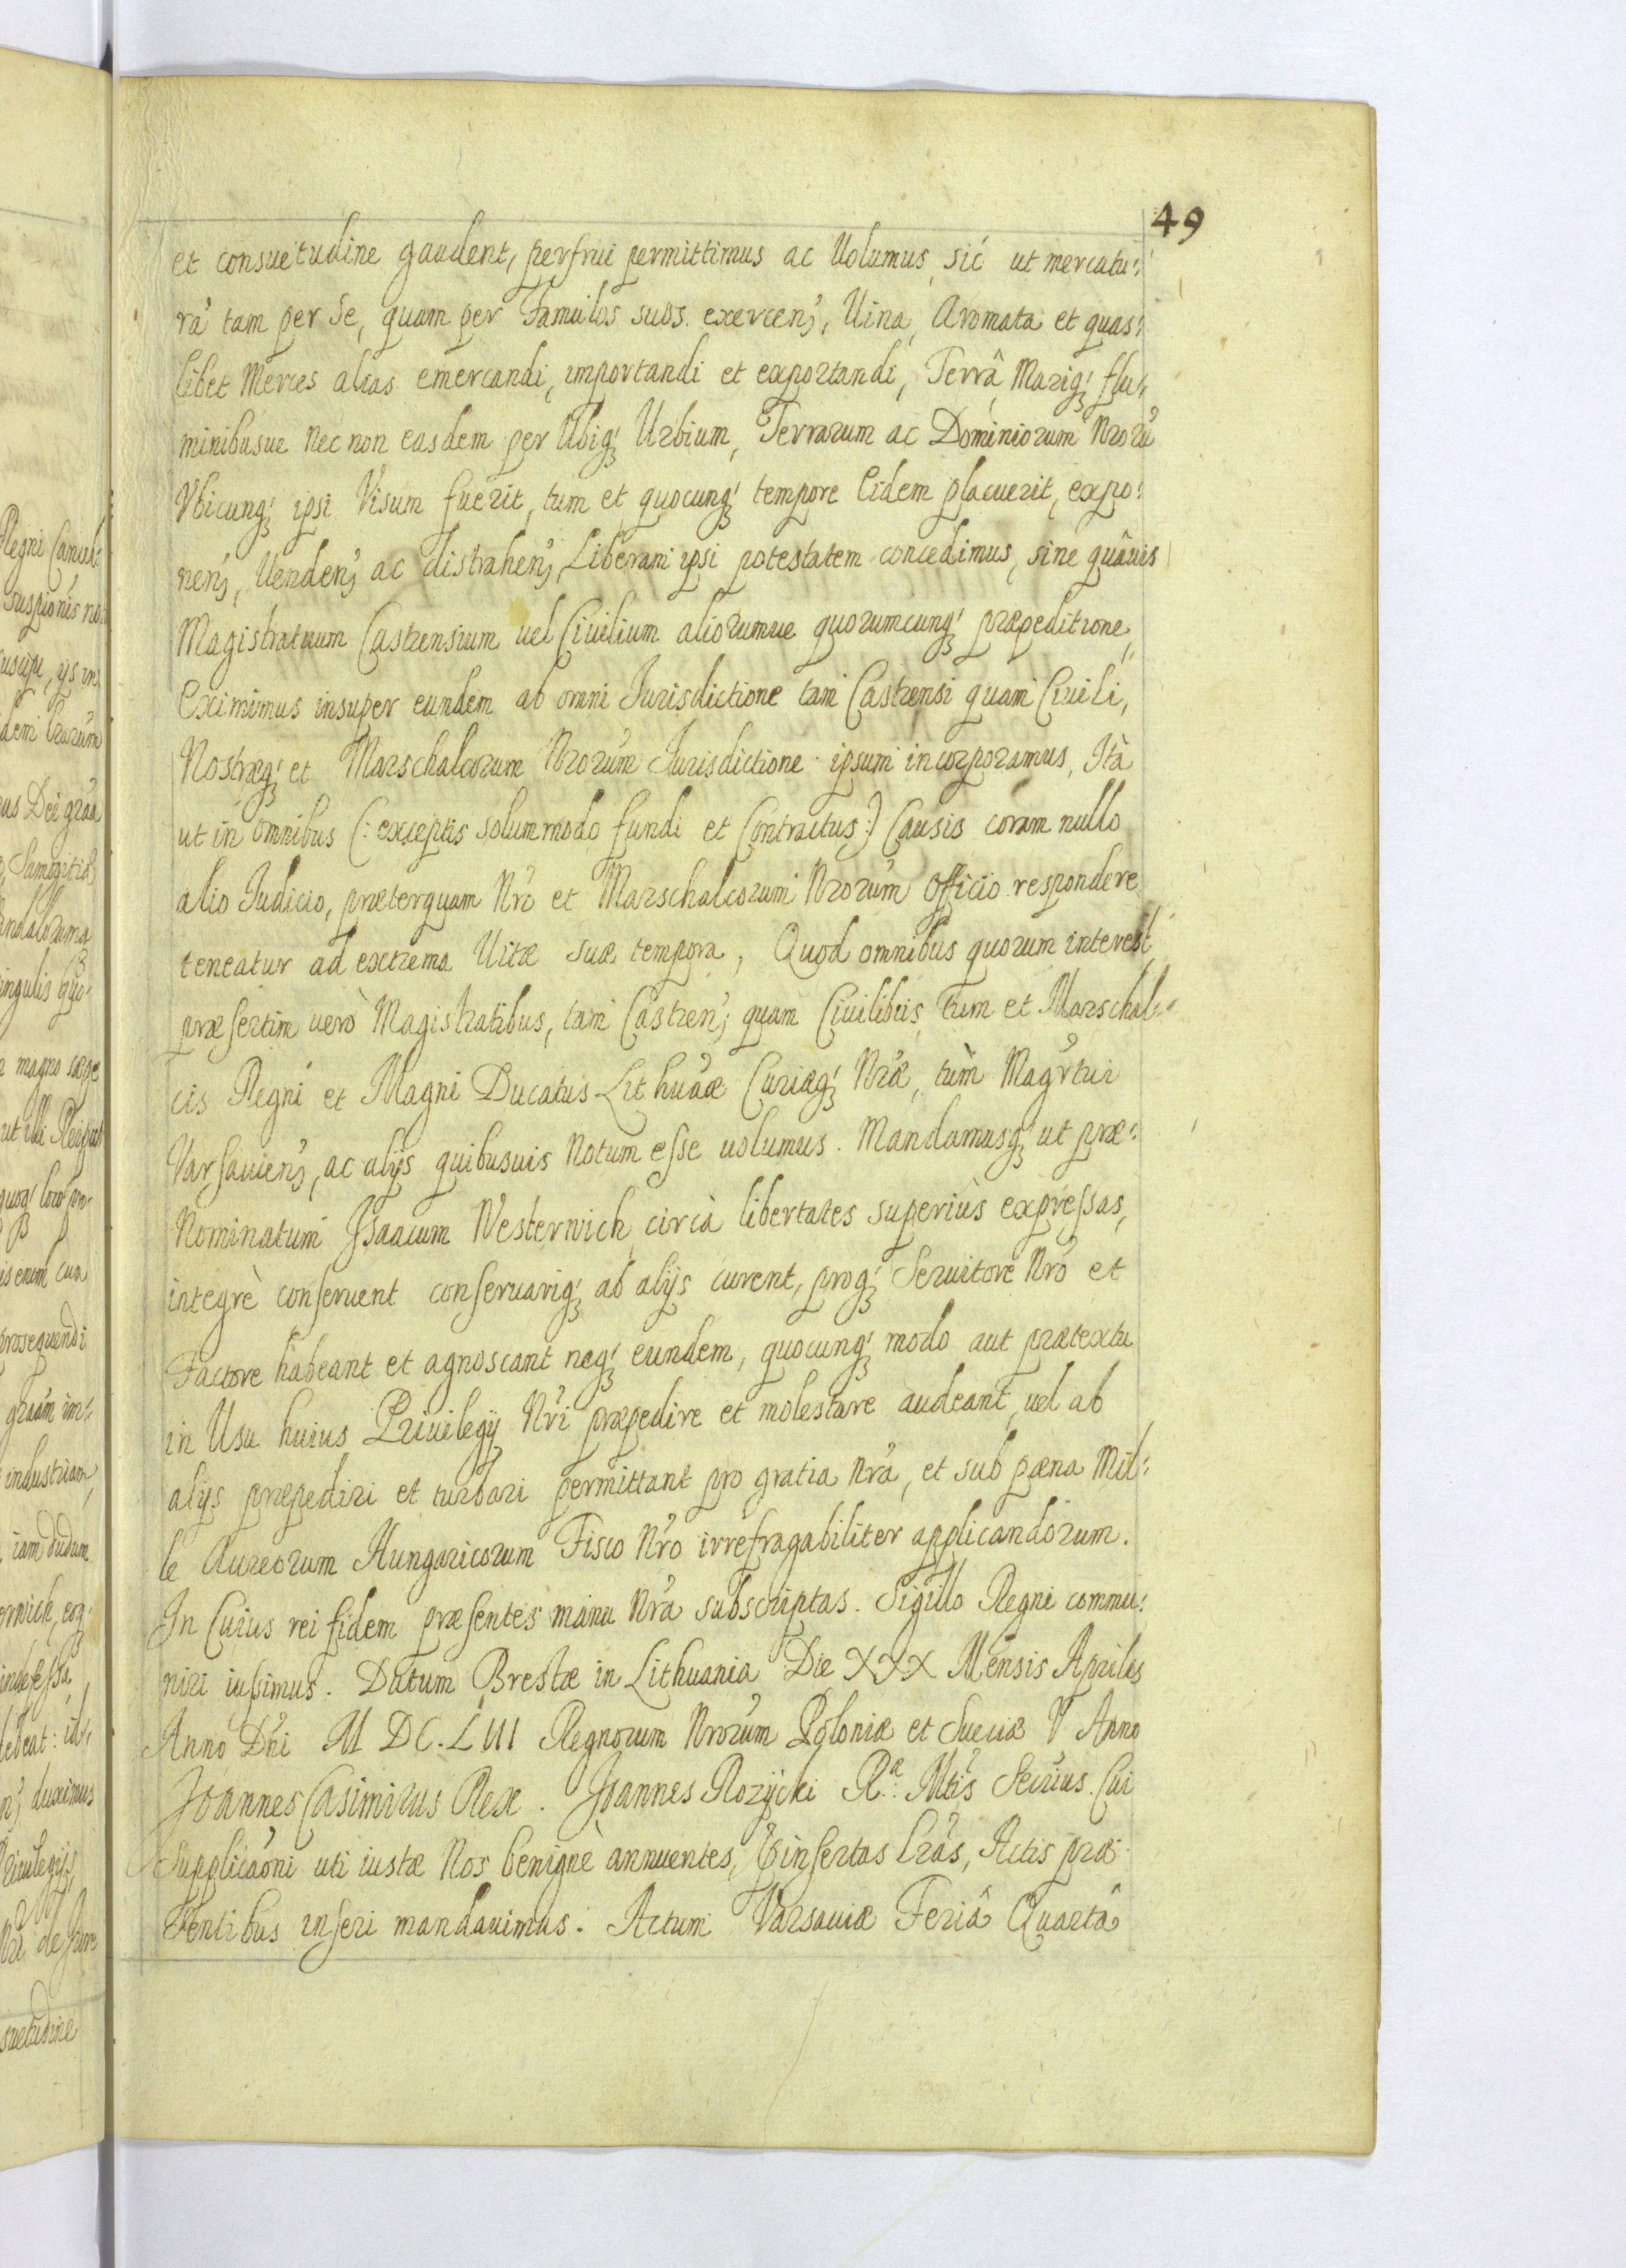 49
et consuetudine gaudent, perfrui permittimus ac Uolumus, sic ut mercatu:
rā tam per Se, quam per Famulos suos exercen;, Uina, Aromata et quas:
libet Merces alias emercandi, importandi et exportandi, Terrâ Mariq; flu:
minibusue nec non easdem per Ubiq; Urbium, Terrarum ac Dominiorum Nrorū
Vbicunq; ipsi Visum fuerit, tum et quocunq; tempore Eidem placuerit, expo:
nen;, Uenden; ac distrahen; Liberam ipsi potestatem concedimus, sine quâuis
Magistratuum Castrensium uel Ciuilium aliorumue quorumcunq; præpeditione,
Eximimus insuper eundem ab omni Jurisdictione tam Castrensi quam Ciuili,
Nostræq; et Marschalcorum Nrorum Jurisdictione ipsum incorporamus, Ità
ut in omnibus (: exceptis solummodo fundi et Contractus :) Causis coram nullo
alio Judicio, præterquam Nro et Marschalcorum Nrorum Officio respondere
teneatur ad extrema Uitæ suæ tempora, Quod omnibus quorum interest,
præsertim uerò Magistratibus, tam Castren; quam Ciuilibus, Tum et Marschal:
cis Regni et Magni Ducatus Lithuaæ Curiæq; Nræ, tùm Magrtui
Varsauien;, ac alijs quibusuis Notum esse uolumus. Mandamusq; ut præ:
Nominatum Jsaacum Westerwich circà libertates superiùs expressas,
integrè conseruent conseruariq; ab alijs curent, proq; Seruitore Nro et
Factore habeant et agnoscant neq; eundem, quocunq; modo aut prætextu
in Usu huius Priuilegij Nri præpedire et molestare audeant, uel ab
alijs præpediri et turbari permittant pro gratia Nra, et sub pæna Mil:
le Aureorum Hungaricorum Fisco Nro irrefragabiliter applicandorum.
In Cuius rei fidem præsentes manu Nra subscriptas. Sigillo Regni commu:
niri iussimus. Datum Brestæ in Lithuania Die XXX Mensis Aprilis
Anno Dni M DC. LIII Regnorum Nrorum Poloniæ et Sueciæ V Anno
Joannes Casimirus Rex. Joannes Rozycki Ræ. Mtis Secrius. Cui
Supplicaoni uti iustæ Nos benignè annuentes, insertas Lras, Actis præ
sentibus inseri mandauimus. Actum Varsauiæ Feriâ Quartâ